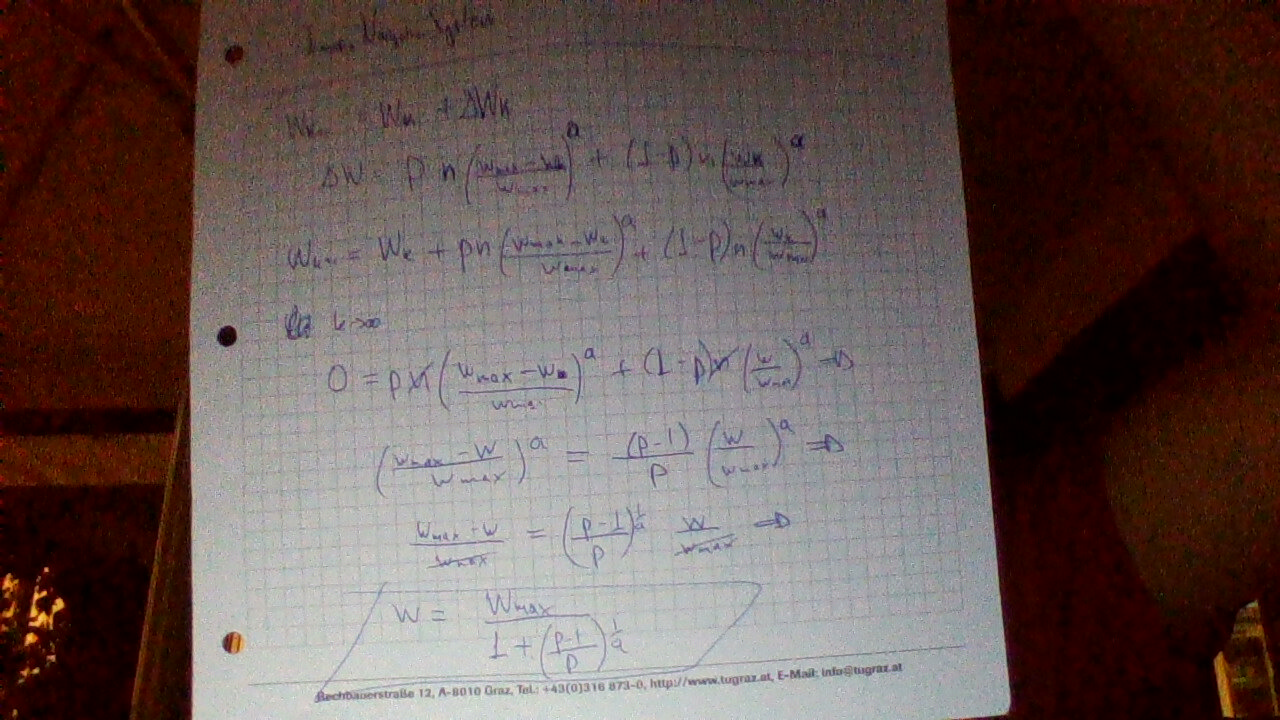 System
W_k = W_k + ΔW_k
ΔW = p n ((w_max - w_k)/w_max)^a + (1-p) n (w_k/w_max)^a
W_k+1 = W_k + pn ((w_max - w_k)/w_max)^a + (1-p) n (w_k/w_max)^a
k→∞
0 = p n ((w_max - w)/w_max)^a + (1-p) n (w/w_max)^a ⇒
((w_max - w)/w_max)^a = (p-1)/p (w/w_max)^a ⇒
(w_max - w)/w_max = ((p-1)/p)^(1/a) w/w_max ⇒
w = w_max/(1 + ((p-1)/p)^(1/a))
Rechbauerstraße 12, A-8010 Graz, Tel.: +43(0)316 873-0, http://www.tugraz.at, E-Mail: info@tugraz.at